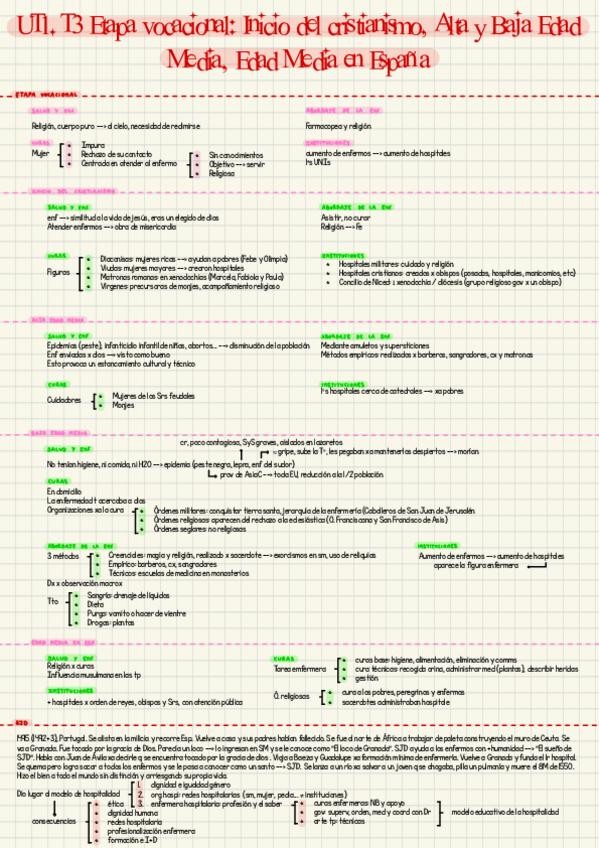 UT1. T3 Etapa vocacional: Inicio del cristianismo, Alta y Baja Edad
Media, Edad Media en España
ETAPA VOCACIONAL
SALUD Y ENF
ABORDAJE DE LA ENF
Religión, cuerpo puro --> al cielo, necesidad de redimirse
Farmacopea y religión
CURAS
INSTITUCIONES
Mujer
Impura
Rechazo de su contacto
Centrada en atender al enfermo
Sin conocimientos
Objetivo --> servir
Religiosa
aumento de enfermos --> aumento de hospitales
1ªs UNIs
INICIO DEL CRISTIANISMO
SALUD Y ENF
ABORDAJE DE LA ENF
enf --> similitud a la vida de jesús, eras un elegido de dios
Atender enfermos --> obra de misericordia
Asistir, no curar
Religión --> Fe
CURAS
INSTITUCIONES
Figuras
Diaconisas: mujeres ricas --> ayudan a pobres (Febe y Olimpia)
Viudas: mujeres mayores --> crearon hospitales
Matronas romanas: en xenodochias (Marcela, Fabiola y Paula)
Vírgenes: precursoras de monjes, acompañamiento religioso
Hospitales militares: cuidado y religión
Hospitales cristianos: creados x obispos (posadas, hospitales, manicomios, etc)
Concilio de Nicea: 1 xenodochia / diócesis (grupo religioso gov x un obispo)
ALTA EDAD MEDIA
SALUD Y ENF
ABORDAJE DE LA ENF
Epidemias (peste), infanticidio infantil de niñas, abortos... --> disminución de la población
Enf enviadas x dios --> visto como bueno
Esto provoca un estancamiento cultural y técnico
Mediante amuletos y supersticiones
Métodos empíricos: realizados x barberos, sangradores, cx y matronas
CURAS
INSTITUCIONES
Cuidadores
Mujeres de los Srs feudales
Monjes
1ºs hospitales cerca de catedrales --> xa pobres
BAJA EDAD MEDIA
cr, poco contagiosa, SyS graves, aislados en lazaretos
SALUD Y ENF
≈ gripe, sube la Tª, les pegaban xa mantenerlos despiertos --> morían
No tenían higiene, ni comida, ni H2O --> epidemia (peste negra, lepra, enf del sudor)
prov de Asia C --> toda EU, reducción a la 1/2 población
CURAS
En domicilio
La enfermedad t acercaba a dios
Organizaciones xa la cura
Órdenes militares: conquistar tierra santa, jerarquía de la enfermería (Caballeros de San Juan de Jerusalén
Órdenes religiosas: aparecen del rechazo a la eclesiástica (O. Franciscana y San Francisco de Asís)
Órdenes seglares: no religiosas
ABORDAJE DE LA ENF
INSTITUCIONES
3 métodos
Creenciales: magia y religión, realizado x sacerdote --> exorcismos en sm, uso de reliquias
Empírico: barberos, cx, sangradores
Técnicos: escuelas de medicina en monasterios
Aumento de enfermos --> aumento de hospitales
aparece la figura enfermera
Dx x observación macrox
Tto
Sangría: drenaje de líquidos
Dieta
Purga: vomito o hacer de vientre
Drogas: plantas
EDAD MEDIA EN ESP
SALUD Y ENF
CURAS
Religión x curas
Influencia musulmana en las tp
Tarea enfermera
curas base: higiene, alimentación, eliminación y comms
curas técnicas: recogida orina, administrar med (plantas), describir heridas
gestión
INSTITUCIONES
+ hospitales x orden de reyes, obispos y Srs, con atención pública
O. religiosas
cura a los pobres, peregrinos y enfermos
sacerdotes administraban hospitale
SJD
Se va a Granada. Fue tocado por la gracia de Dios. Parecía un loco --> lo ingresan en SM y se le conoce como "El loco de Granada". SJD ayuda a los enfermos con +humanidad --> "El sueño de
SJD". Habla con Juan de Ávila xa decirle q se encuentra tocado por la gracia de dios. Viaja a Baeza y Guadalupe xa formación mínima de enfermería. Vuelve a Granada y funda el 1r hospital.
Se quema pero logra sacar a todos los enfermos y se le pasa a conocer como un santo --> SJD. Se lanza a un río xa salvar a un joven que ahogaba, pilla un pulmonía y muere el 8M de 1550.
Hizo el bien a todo el mundo sin distinción y arriesgando su propia vida.
Dio lugar al modelo de hospitalidad
1. dignidad e igualdad género
2. org hosp: redes hospitalarias (sm, mujer, pedia... ≠ instituciones)
3. enfermera hospitalaria: profesión y el saber
consecuencias
ética
dignidad humana
redes hospitalaria
profesionalización enfermera
formación e I+D
curas enfermeras: NB y apoyo
gov: superv, orden, med y coord con Dr
arte tp: técnicas
modelo educativo de la hospitalidad